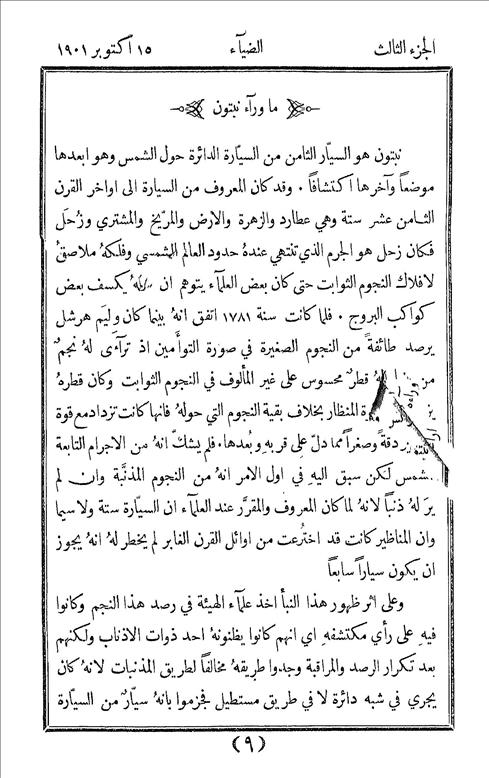 الجزء الثالث الضيآء ١٥ اكتوبر ١٩٠١
ما ورآء نبتون
نبتون هو السيّار الثامن من السيّارة الدائرة حول الشمس وهو ابعدها
موضعاً وآخرها اكتشافاً ٠ وقد كان المعروف من السيارة الى اواخر القرن
الثامن عشر ستة وهي عطارد والزهرة والارض والمرّيخ والمشتري وزُحَل
فكان زحل هو الجرم الذي تنتهي عندهُ حدود العالم الشمسي وفلكهُ ملاصقٌ
لافلاك النجوم الثوابت حتى كان بعض العلمآء يتوهم ان يكسف بعض
كواكب البروج ٠ فلما كانت سنة ١٧٨١ اتفق انهُ بينما كان وليَم هرشل
يرصد طائفةً من النجوم الصغيرة في صورة التوأمين اذ ترآءى لهُ نجمٌ
من لهُ قطرٌ محسوس على غير المألوف في النجوم الثوابت وكان قطرهُ
قوة المنظار بخلاف بقية النجوم التي حولهُ فانها كانت تزداد مع قوة
دقةً وصغراً مما دلّ على قربهِ وبُعدها ٠ فلم يشكّ انهُ من الاجرام التابعة
شمس لكن سبق اليهِ في اول الامر انهُ من النجوم المذنَّبة وان لم
يرَ لهُ ذنباً لانهُ لما كان المعروف والمقرَّر عند العلمآء ان السيّارة ستة ولا سيما
وان المناظير كانت قد اختُرعت من اوائل القرن الغابر لم يخطر لهُ انهُ يجوز
ان يكون سياراً سابعاً
وعلى اثر ظهور هذا النبأ اخذ علمآء الهيئة في رصد هذا النجم وكانوا
فيهِ على رأي مكتشفهِ اي انهم كانوا يظنونهُ احد ذوات الاذناب ولكنهم
بعد تكرار الرصد والمراقبة وجدوا طريقهُ مخالفاً لطريق المذنبات لانهُ كان
يجري في شبه دائرة لا في طريق مستطيل فجزموا بانهُ سيّارٌ من السيّارة
(٩)